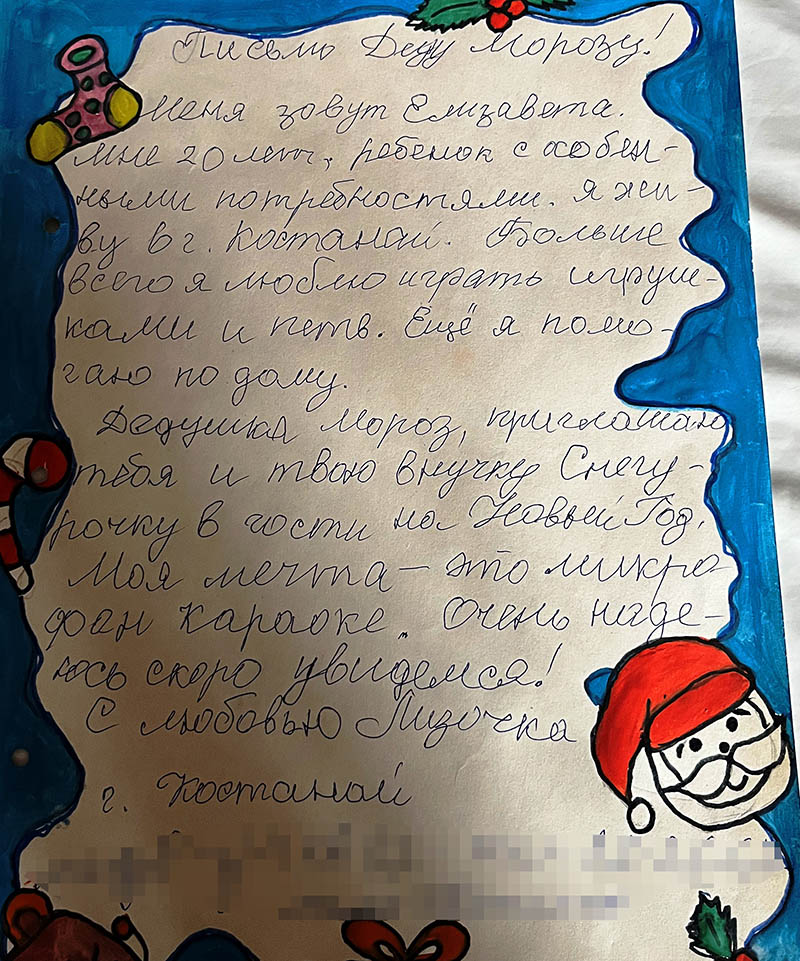 Письмо Деду Морозу!
Меня зовут Елизавета.
Мне 20 лет, ребенок с особен-
ными потребностями. Я жи-
ву в г. Костанай. Больше
всего я люблю играть игруш-
ками и петь. Ещё я помо-
гаю по дому.
Дедушка Мороз, приглашаю
тебя и твою внучку Снегу-
рочку в гости на Новый Год.
Моя мечта – это микро
фон караоке. Очень наде-
юсь скоро увидемся!
С любовью Лизочка
г. Костанай